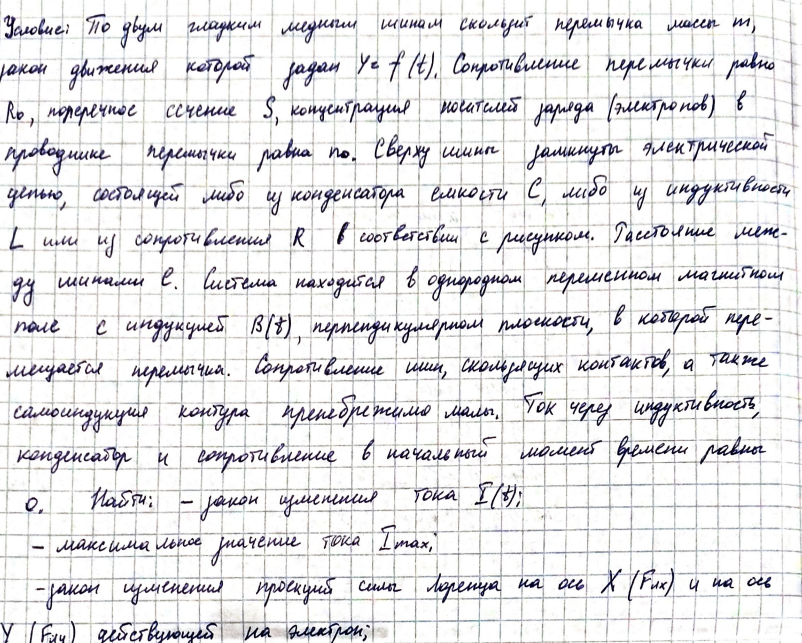 Условие: По двум гладким медным шинам скользит перемычка массы m,
закон движения которой задан Y= f(t). Сопротивление перемычки равно
R₀, поперечное сечение S, концентрация носителей заряда (электронов) в
проводнике перемычки равна n₀. Сверху шины замкнуты электрической
цепью, состоящей либо из конденсатора емкости C, либо из индуктивности
L или из сопротивления R в соответствии с рисунком. Расстояние меж-
ду шинами ℓ. Система находится в однородном переменном магнитном
поле с индукцией B(t), перпендикулярном плоскости, в которой пере-
мещается перемычка. Сопротивление шин, скользящих контактов, а также
самоиндукция контура пренебрежимо малы. Ток через индуктивность,
конденсатор и сопротивление в начальный момент времени равны
0. Найти: – закон изменения тока I(t);
– максимальное значение тока Imax;
–закон изменения проекций силы Лоренца на ось X (Fлx) и на ось
Y (Fлy) действующей на электрон;